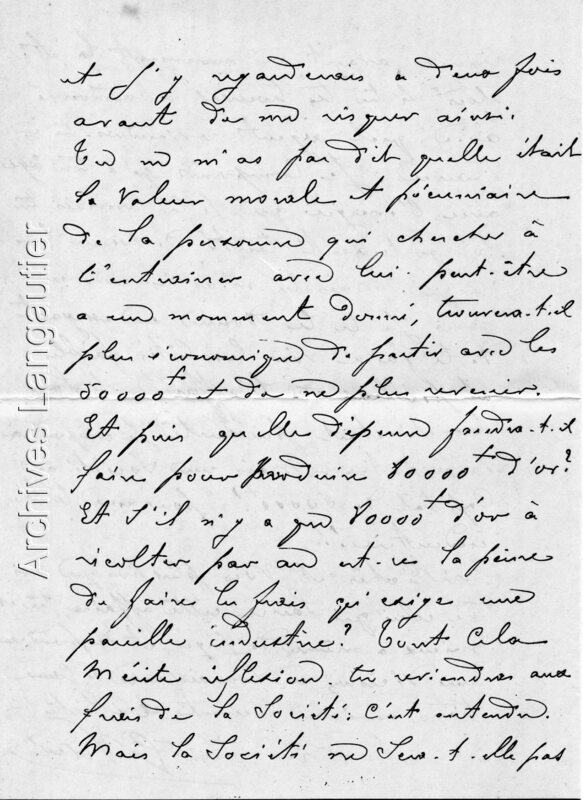 et j'y regarderais a deux fois
avant de me risquer ainsi.
Tu ne m'as pas dit quelle était
la valeur morale et pécuniaire
de la personne qui cherche à
t'entrainer avec lui. peut-être
a un momment donné, trouvera-t-il
plus économique de partir avec les
50000f et de ne plus revenir.
Et puis quelle dépense faudra-t-il
faire pour produire 80000f d'or?
Et s'il n'y a que 80000f d'or à
récolter par an est-ce la peine
de faire les frais qu'exige une
pareille industrie? Tout cela
mérite réflexion. tu reviendras aux
frais de la Société: c'est entendu.
Mais la Société ne sera-t-elle pas
Archives Langautier